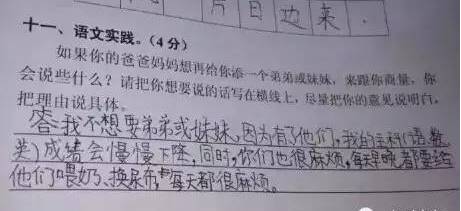 片日边来.
十一、语文实践。(4分)
如果你的爸爸妈妈想再给你添一个弟弟或妹妹，来跟你商量，你
会说些什么？请把你想要说的话写在横线上，尽量把你的意见说明白，
把理由说具体。
答：我不想要弟弟或妹妹，因为有了他们，我的主科(语、数、
英)成绩会慢慢下降，同时，你们也很麻烦，每天早晚都要给
他们喂奶、换尿布，每天都很麻烦。